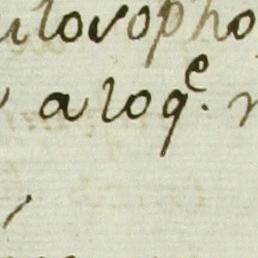 ilosopho
a loq.e